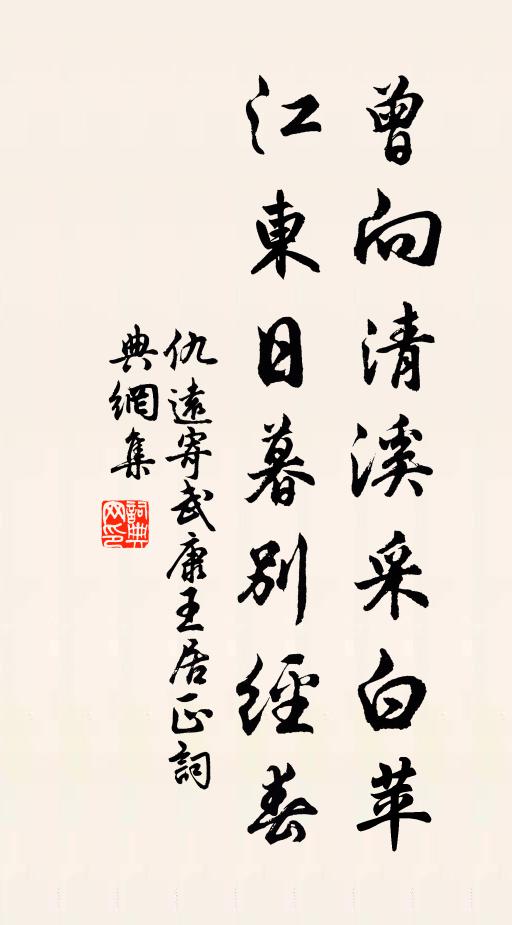 曾向清溪采白苹
江東日暮別經春
仇遠寄武康王居正詞
典網集
詞典網印